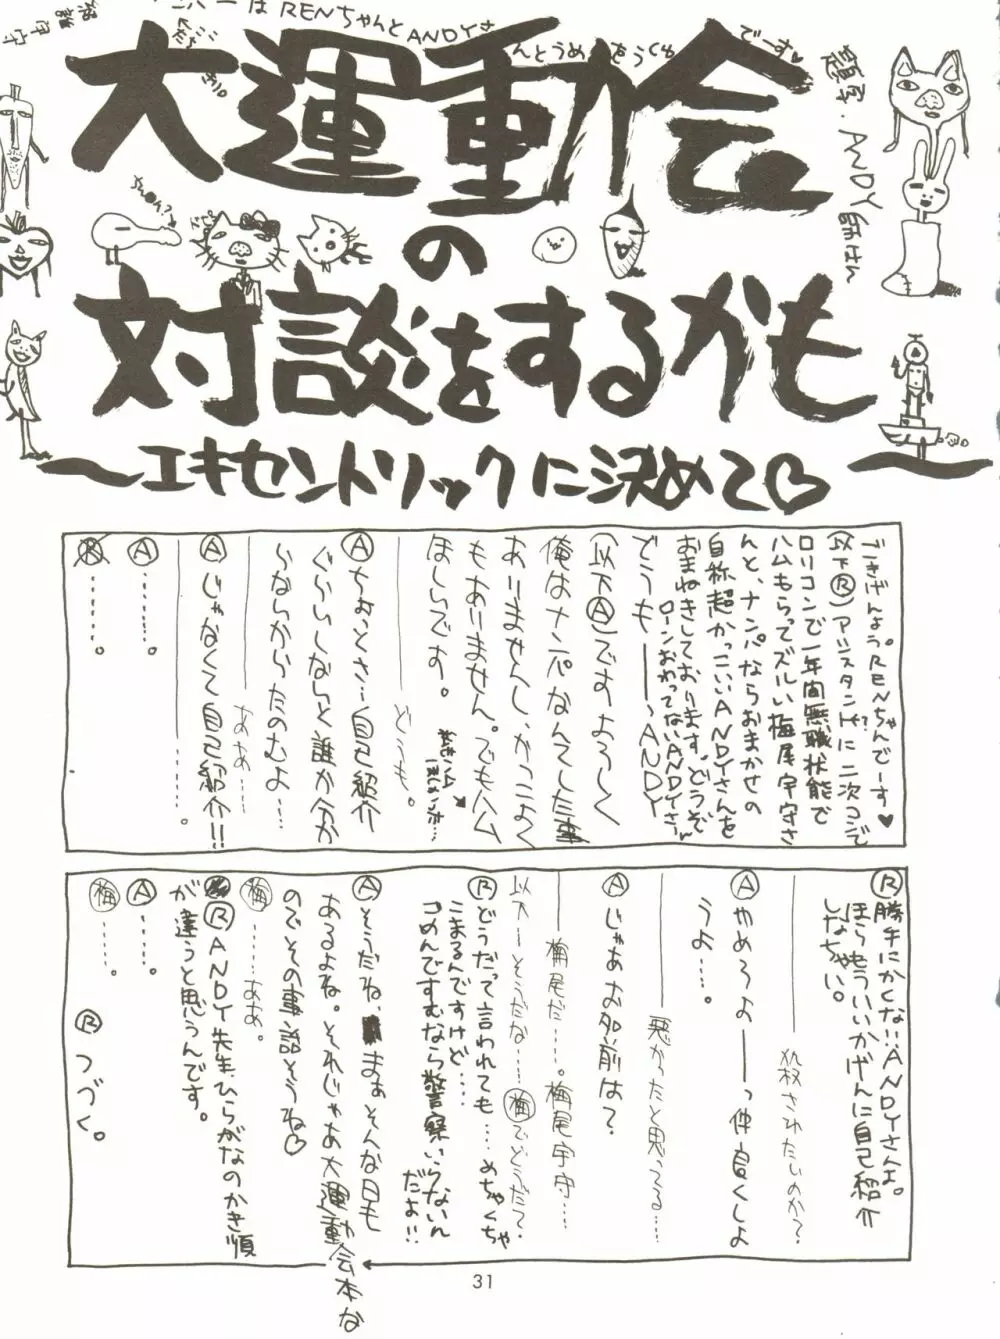 はRENちゃんとANDYさ
んとうめ
でーす♥
題字・ANDY師はん
大運動会
の
対談をするかも
〜エキセントリックに決めて♡〜
ごきげんよう。RENちゃんでーす♥
(以下Ⓡ)アシスタントに二次コンで
ロリコンで一年間無職状態で
ハムもらってズルい梅尾宇守さ
んと、ナンパならおまかせの
自称超かっこいいANDYさんを
おまねきしております。どうぞ
ローンおわってないANDYさーん
でうも――〜ANDY
(以下Ⓐ)ですよろしく
俺はナンパなんてした事
ありませんし、かっこよく
もありません。でもハム
ほしいです。
――どうも。
Ⓐちょっとさ…自己紹介
ぐらいしないと誰か分か
らないからたのむよ…
――ああ…
Ⓐじゃなくて自己紹介!!
――………。
Ⓐ………。
Ⓡ………。
Ⓡ勝手にかくない:ANDYさんよ。
ほらもういいかげんに自己紹介
しなちい。
――殺されたいのか?
Ⓐやめろよ――っ仲良くしよ
うよ…。
――悪かったと思ってる…
Ⓐじゃあお前は?
――梅尾だ……。梅尾宇守…
以下―そうだな…㊍でどうだ?
Ⓡどうだって言われても…めちゃくちゃ
こまるんですけど…
ごめんですむなら警察いらないん
だよ!!
Ⓐそうだね、まぁそんな日も
あるよね。それじゃあ大運動会本な
のでその事話そうね♡
梅……ああ。
ⓇANDY先生、ひらがなのかき順
が違うと思うんです。
Ⓐ……。
梅……。
Ⓡつづく。
31